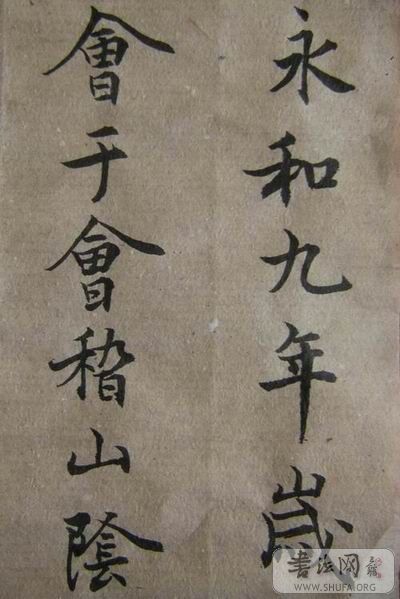 永和九年歲
會于會稽山陰
書法网
WWW.SHUFA.ORG